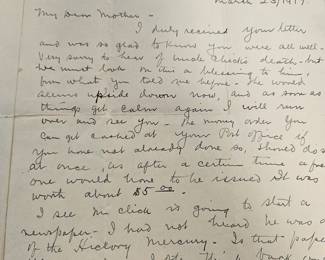 March 23/1917
My Dear Mother-
I duly received your letter
and was so glad to know you were all well-
Very sorry to hear of Uncle death, - but
we must look on this a blessing to him,
from what you told me before. The world
seems upside down now, and as soon as
things get calm again I will run
over and see you. The money order you
can get cashed at your Post Office if
you have not already done so, should do so
at once, as after a certain time a
one would have to be issued it was
worth about $5.00
I see Mr Click is going to start a
newspaper - I had not heard he was a
of the Hickory Mercury. Is that paper